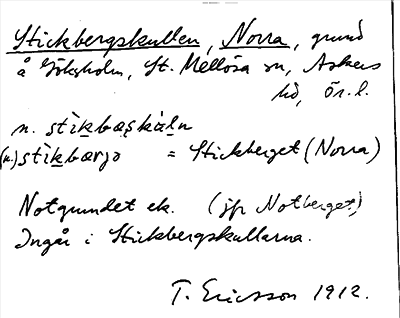 Stickbergskullen, Norra, grund
å Göksholm, St. Mellösa sn, Askers
hd, Ör. l.
n. stìkbæskàln
(n.) stìkbærjə = Stickberget (Norra)
Notgrundet ek. (jfr Notberget)
Ingår i Stickbergskullarna.
T. Ericsson 1912.